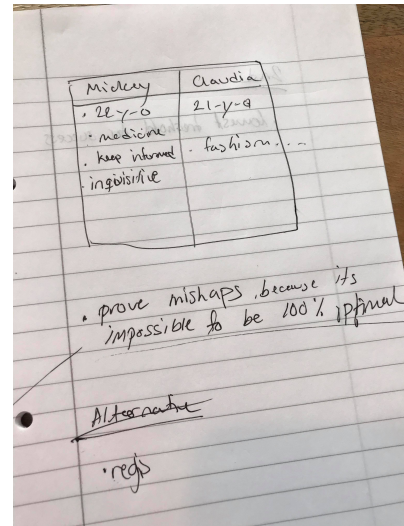 Mickey Claudia
· 22-y-o 21-y-o
· medicine
· keep informed · fashion....
· inquisitive
· prove mishaps, because its
impossible to be 100% optimal
Alternative
· regis